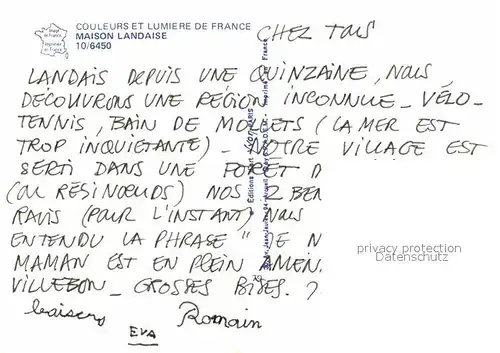 COULEURS ET LUMIERE DE FRANCE
MAISON LANDAISE
10/6450
Image de France
Imprimée en France
CHEZ TOUS
LANDAIS DEPUIS UNE QUINZAINE, NOUS
DÉCOUVRONS UNE RÉGION INCONNUE _ VÉLO _
TENNIS, BAIN DE MOLLETS (LA MER EST
TROP INQUIÉTANTE) _ NOTRE VILLAGE EST
SERTI DANS UNE FORÊT D
(OU RÉSINOEUDS) NOS 2 BEN
RAVIS (POUR L'INSTANT) NOUS
ENTENDU LA PHRASE " JE N
MAMAN EST EN PLEIN AMEN.
VILLEBON _ GROSSES BISES. ?
baisers Romain
EVA
privacy protection
Datenschutz